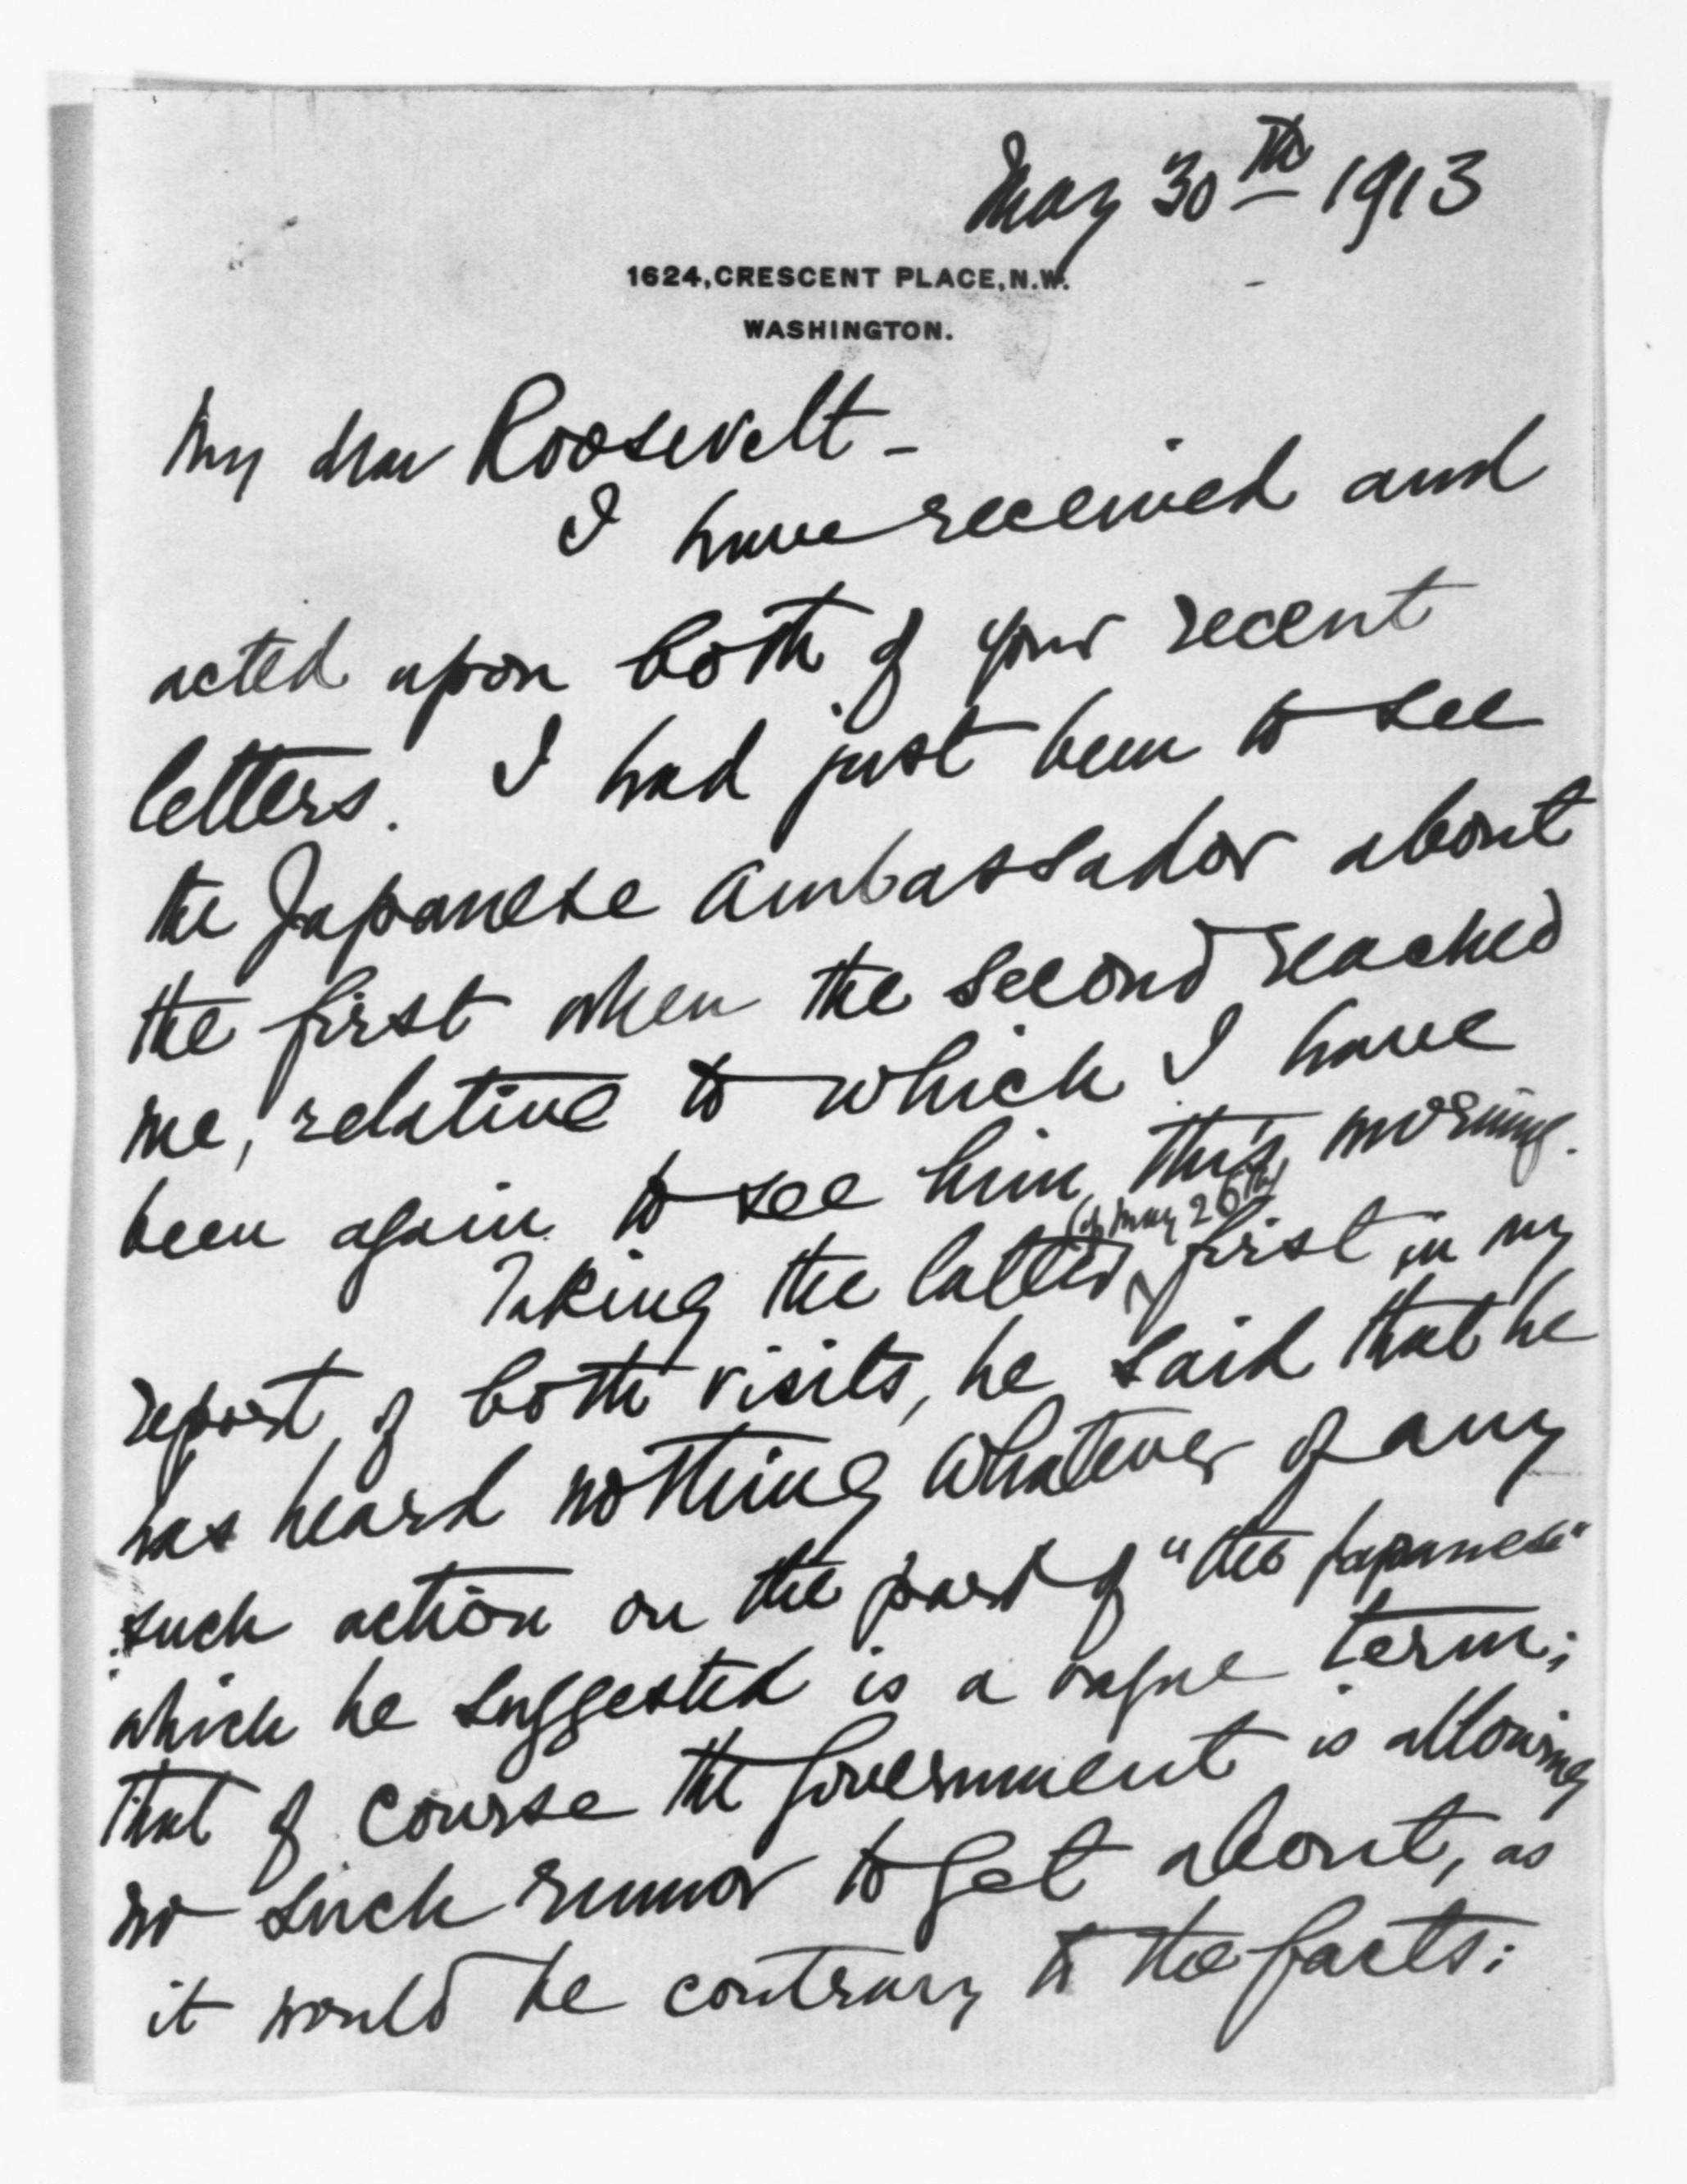 May 30th 1913
1624, CRESCENT PLACE, N.W.
WASHINGTON.
My dear Roosevelt -
I have received and
acted upon both of your recent
letters. I had just been to see
the Japanese Ambassador about
the first when the second reached
me, relative to which I have
been again to see him this morning.
(of May 26th)
Taking the latter first in my
report of both visits, he said that he
has heard nothing whatever of any
such action on the part of "the Japanese"
which he suggested is a vague term;
that of course the Government is allowing
no such rumor to get about, as
it would be contrary to the facts: